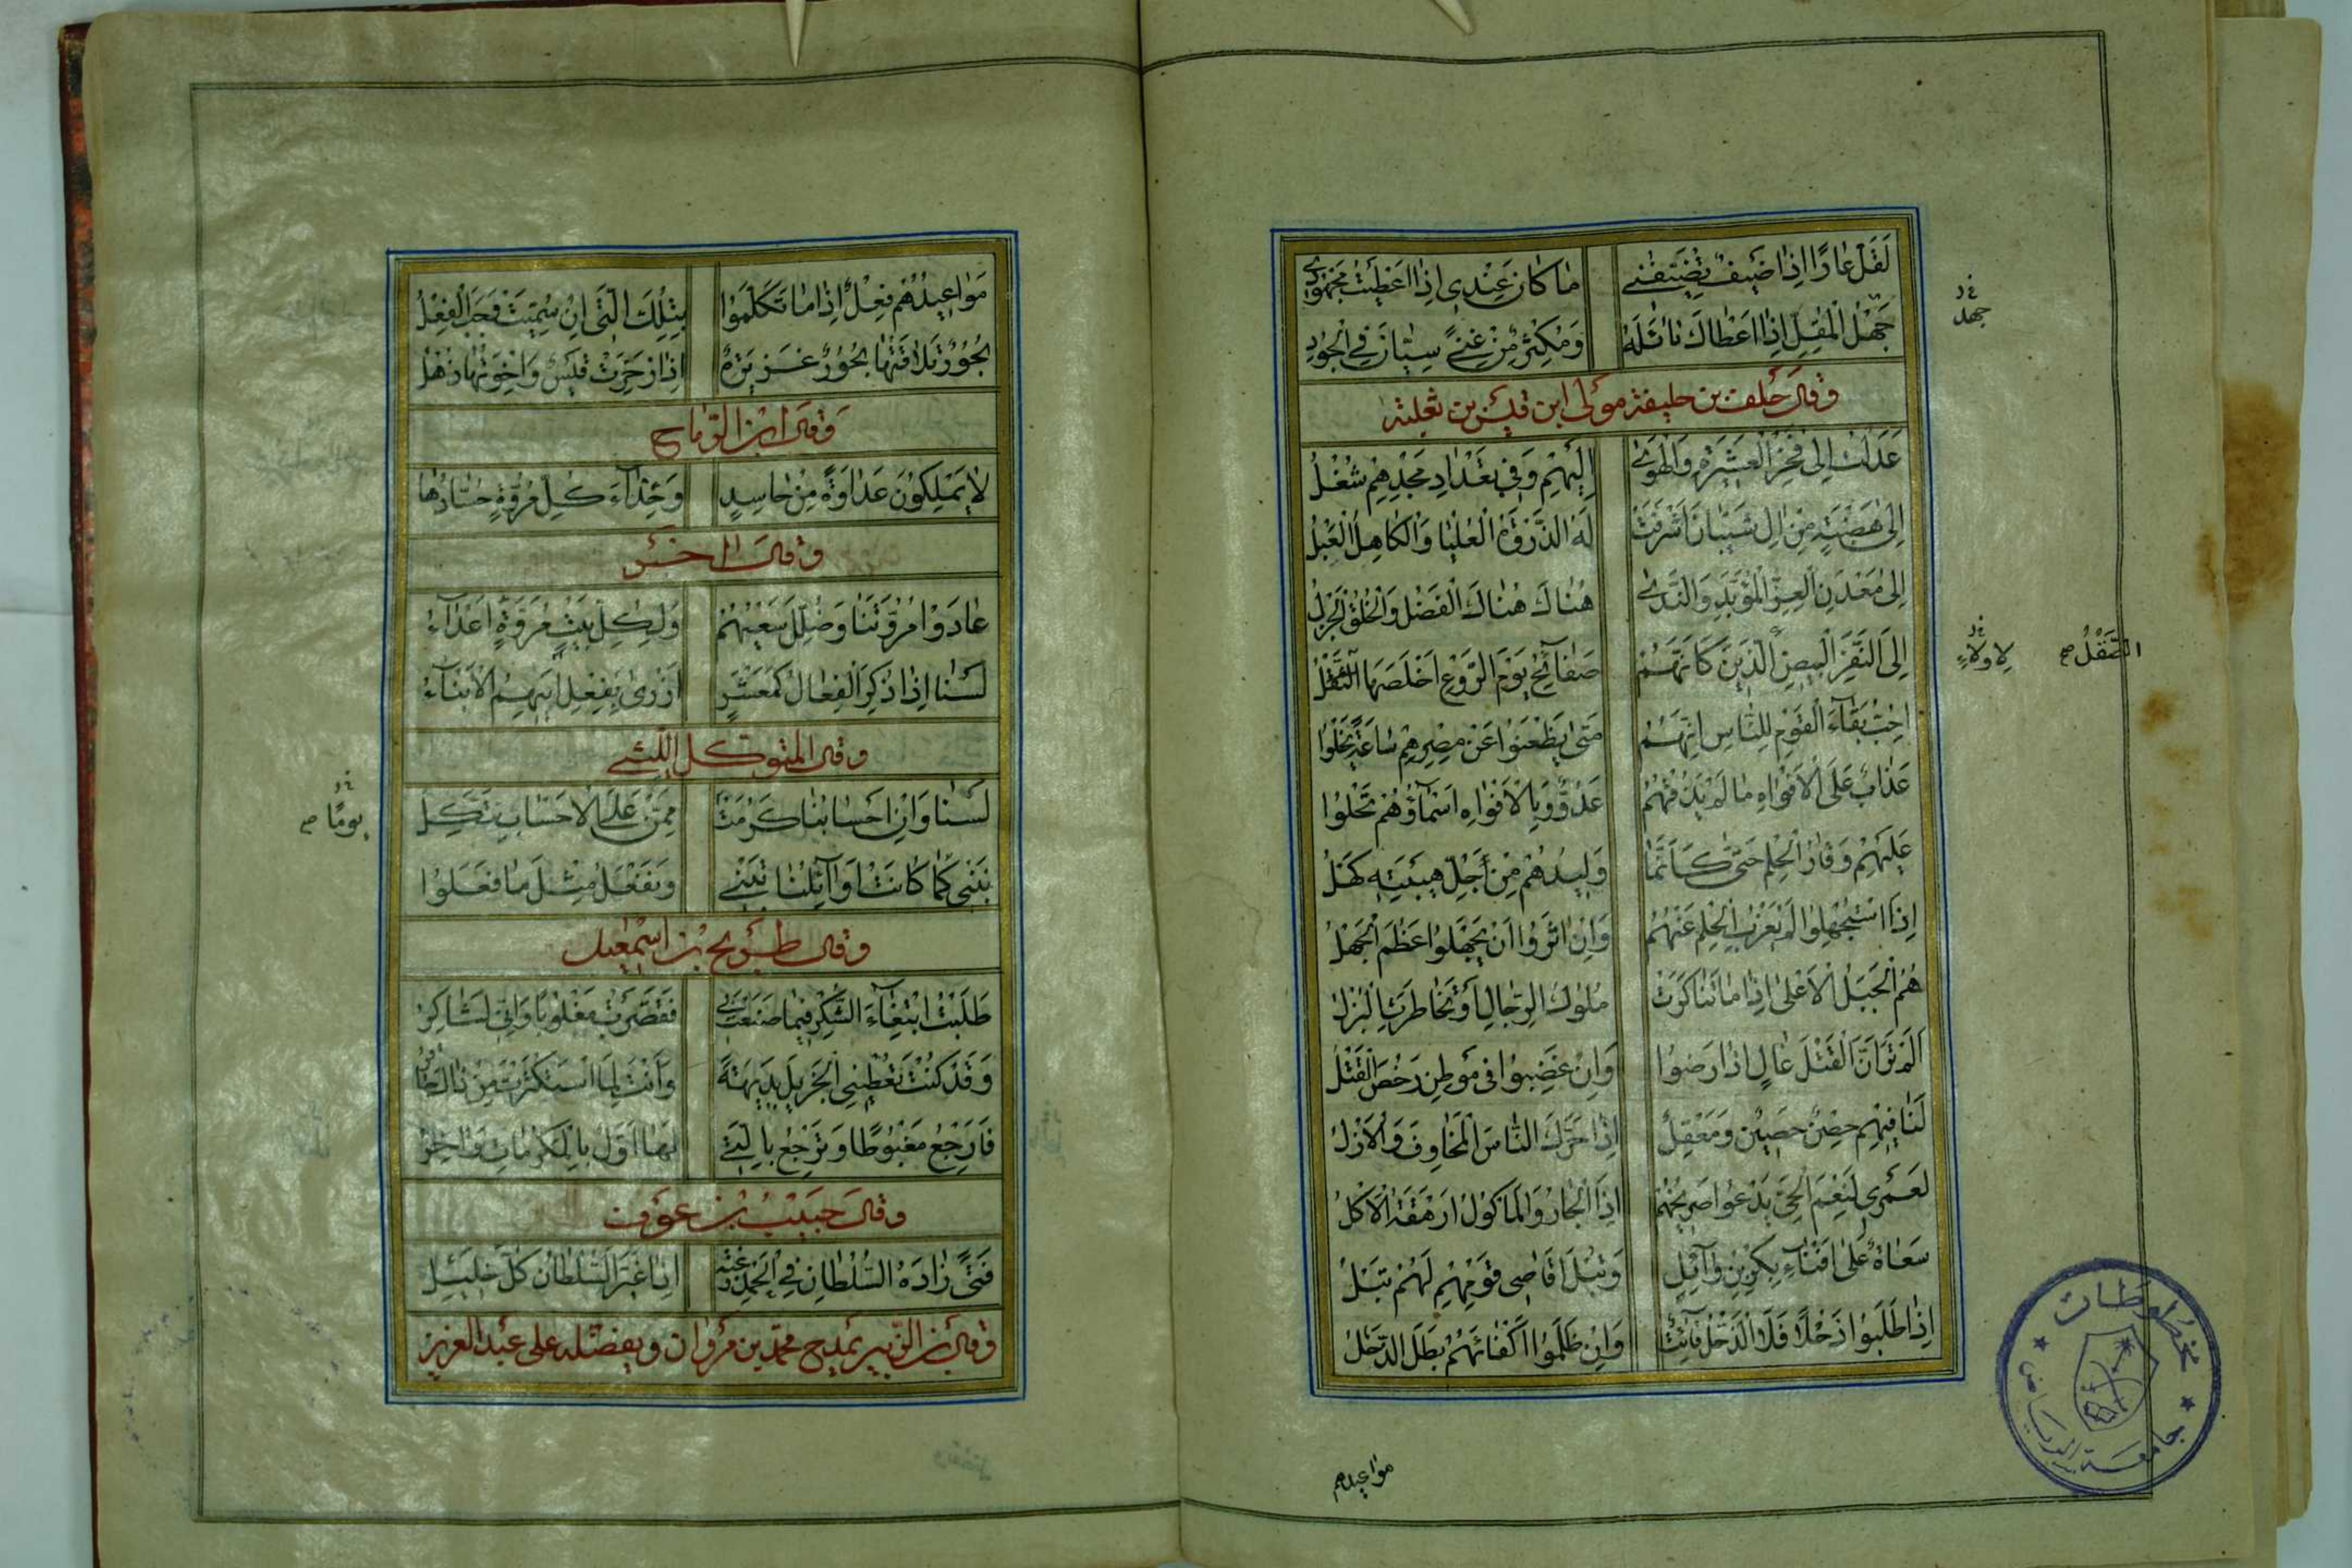 لَقَلَّ عَارًا إِذَا ضَيْفٌ تَضَيَّفَنِي مَا كَانَ عِنْدِي إِذَا أَعْطَيْتُ مَجْهُودِي
جَهْلُ الْمُقِلِّ إِذَا أَعْطَاكَ نَائِلَهُ وَمُكْثِرٌ مِنْ غِنًى سِيَّانِ فِي الْجُودِ
وقال خلف بن خليفة مولى ابن قيس بن ثعلبة
عَدَلْتُ إِلَى فَخْرِ الْعَشِيرَةِ وَالْهَوَى إِلَيْهِمْ وَفِي تَعْدَادِ مَجْدِهِمْ شُغْلُ
إِلَى هَضْبَةٍ مِنْ آلِ شَيْبَانَ أَشْرَفَتْ لَهَا الذَّرْوَةُ الْعُلْيَا وَالْكَاهِلُ الْعَبْلُ
إِلَى مَعْدِنِ الْعِزِّ الْمُؤَبَّدِ وَالنَّدَى هُنَاكَ هُنَاكَ الْفَضْلُ وَالْخُلُقُ الْجَزْلُ
إِلَى النَّفَرِ الْبِيضِ الَّذِينَ كَأَنَّهُمْ صَفَائِحُ يَوْمَ الرَّوْعِ أَخْلَصَهَا الصَّقْلُ
أُحِبُّ بَقَاءَ الْقَوْمِ لِلنَّاسِ إِنَّهُمْ مَتَى يَظْعَنُوا عَنْ مِصْرِهِمْ سَاعَةً يَخْلُوا
عَذَابٌ عَلَى الْأَفْوَاهِ مَا لَمْ يَذُقْهُمُ عَدُوٌّ وَبِالْأَفْوَاهِ أَسْمَاؤُهُمْ تَحْلُوا
عَلَيْهِمْ وَقَارُ الْحِلْمِ حَتَّى كَأَنَّمَا وَلِيدُهُمْ مِنْ أَجْلِ هَيْبَتِهِ كَهْلُ
إِذَا اسْتُجْهِلُوا لَمْ يَعْزُبِ الْحِلْمُ عَنْهُمُ وَإِنْ آثَرُوا أَنْ يَجْهَلُوا عَظُمَ الْجَهْلُ
هُمُ الْجَبَلُ الْأَعْلَى إِذَا مَا تَنَاكَرَتْ مُلُوكُ الرِّجَالِ أَوْ تَخَاطَرَتِ الْبُزْلُ
أَلَمْ تَرَ أَنَّ الْقَتْلَ غَالٍ إِذَا رَضُوا وَإِنْ غَضِبُوا فِي مَوْطِنٍ رَخُصَ الْقَتْلُ
لَنَا فِيهِمْ حِصْنٌ حَصِينٌ وَمَعْقِلٌ إِذَا حَرَّكَ النَّاسَ الْمَخَاوِفُ وَالْأَزْلُ
لَعَمْرِي لَنِعْمَ الْحَيُّ يَدْعُوا صَرِيخُهُمْ إِذَا الْجَارُ وَالْمَأْكُولُ أَرْهَقَهُ الْأَكْلُ
سُعَاةٌ عَلَى أَفْنَاءِ بَكْرِ بْنِ وَائِلٍ وَتَبْلُ أَقَاصِي قَوْمِهِمْ لَهُمُ تَبْلُ
إِذَا طَلَبُوا ذَحْلًا فَلَا الذَّحْلُ فَائِتٌ وَإِنْ ظَلَمُوا أَكْفَاءَهُمْ بَطَلَ الذَّحْلُ
مواعيدهم
جهد
لاولاء
الصَّقْلُ صح
مخطوطات
جامعة الرياض
مَوَاعِيدُهُمْ فِعْلٌ إِذَا مَا تَكَلَّمُوا بِتِلْكَ الَّتِي إِنْ سُمِّيَتْ وَجَبَ الْفِعْلُ
بُحُورٌ تُلَاقِيهَا بُحُورٌ غَزِيرَةٌ إِذَا زَخَرَتْ قَيْسٌ وَإِخْوَتُهَا ذُهْلُ
وقال ابن الرماح
لَا يَمْلِكُونَ عَدَاوَةً مِنْ حَاسِدٍ وَحِذَاءَ كُلِّ مُرُوَّةٍ حُسَّادُهَا
وقال آخر
عَادَوْا مُرُوَّتَنَا وَضُلِّلَ سَعْيُهُمْ وَلِكُلِّ بَيْتِ مُرُوَّةٍ أَعْدَاءُ
لَسْنَا إِذَا ذُكِرَ الْفِعَالُ كَمَعْشَرٍ أَزْرَى بِفِعْلِ أَبِيهِمُ الْأَبْنَاءُ
وقال المتوكل الليثي
لَسْنَا وَإِنْ أَحْسَابُنَا كَرُمَتْ مِمَّنْ عَلَى الْأَحْسَابِ نَتَّكِلُ
نَبْنِي كَمَا كَانَتْ أَوَائِلُنَا تَبْنِي وَنَفْعَلُ مِثْلَ مَا فَعَلُوا
يومًا صح
وقال طريح بن اسمعيل
طَلَبْتُ ابْتِغَاءَ الشُّكْرِ فِيمَا صَنَعْتَ بِي فَقَصَّرْتُ مَغْلُوبًا وَإِنِّي لَشَاكِرُ
وَقَدْ كُنْتَ تُعْطِينِي الْجَزِيلَ بَدِيهَةً وَأَنْتَ لِمَا اسْتَكْثَرْتُ مِنْ ذَاكَ حَاقِرُ
فَأَرْجِعُ مَغْبُوطًا وَتَرْجِعُ بِالَّتِي لَهَا أَوَّلٌ بِالْمَكْرُمَاتِ وَآخِرُ
وقال حبيب بن عوف
فَتًى زَادَهُ السُّلْطَانُ فِي الْحَمْدِ رَغْبَةً إِذَا غَيَّرَ السُّلْطَانُ كُلَّ خَلِيلِ
وقال بن الزبير يمدح محمد بن مروان ويفضله على عبد العزيز